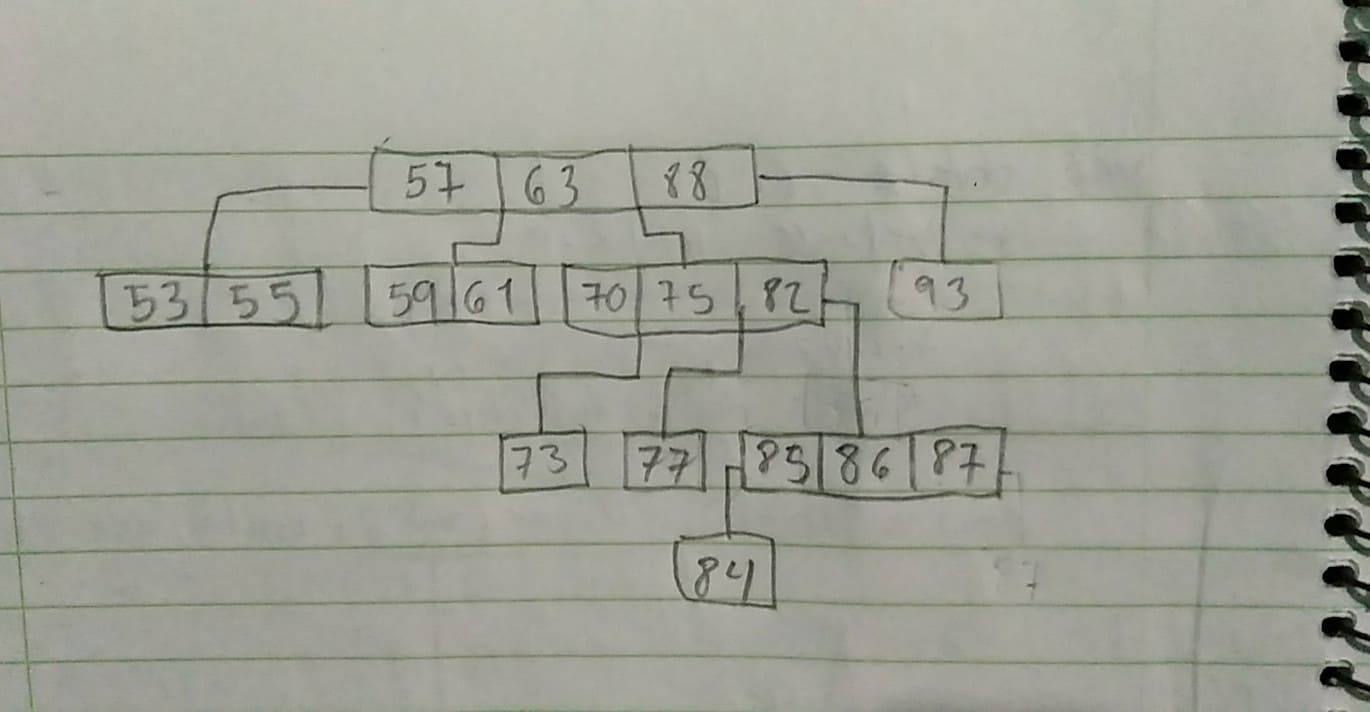 57 63 88
53 55 59 61 70 75 82 93
73 77 85 86 87
84